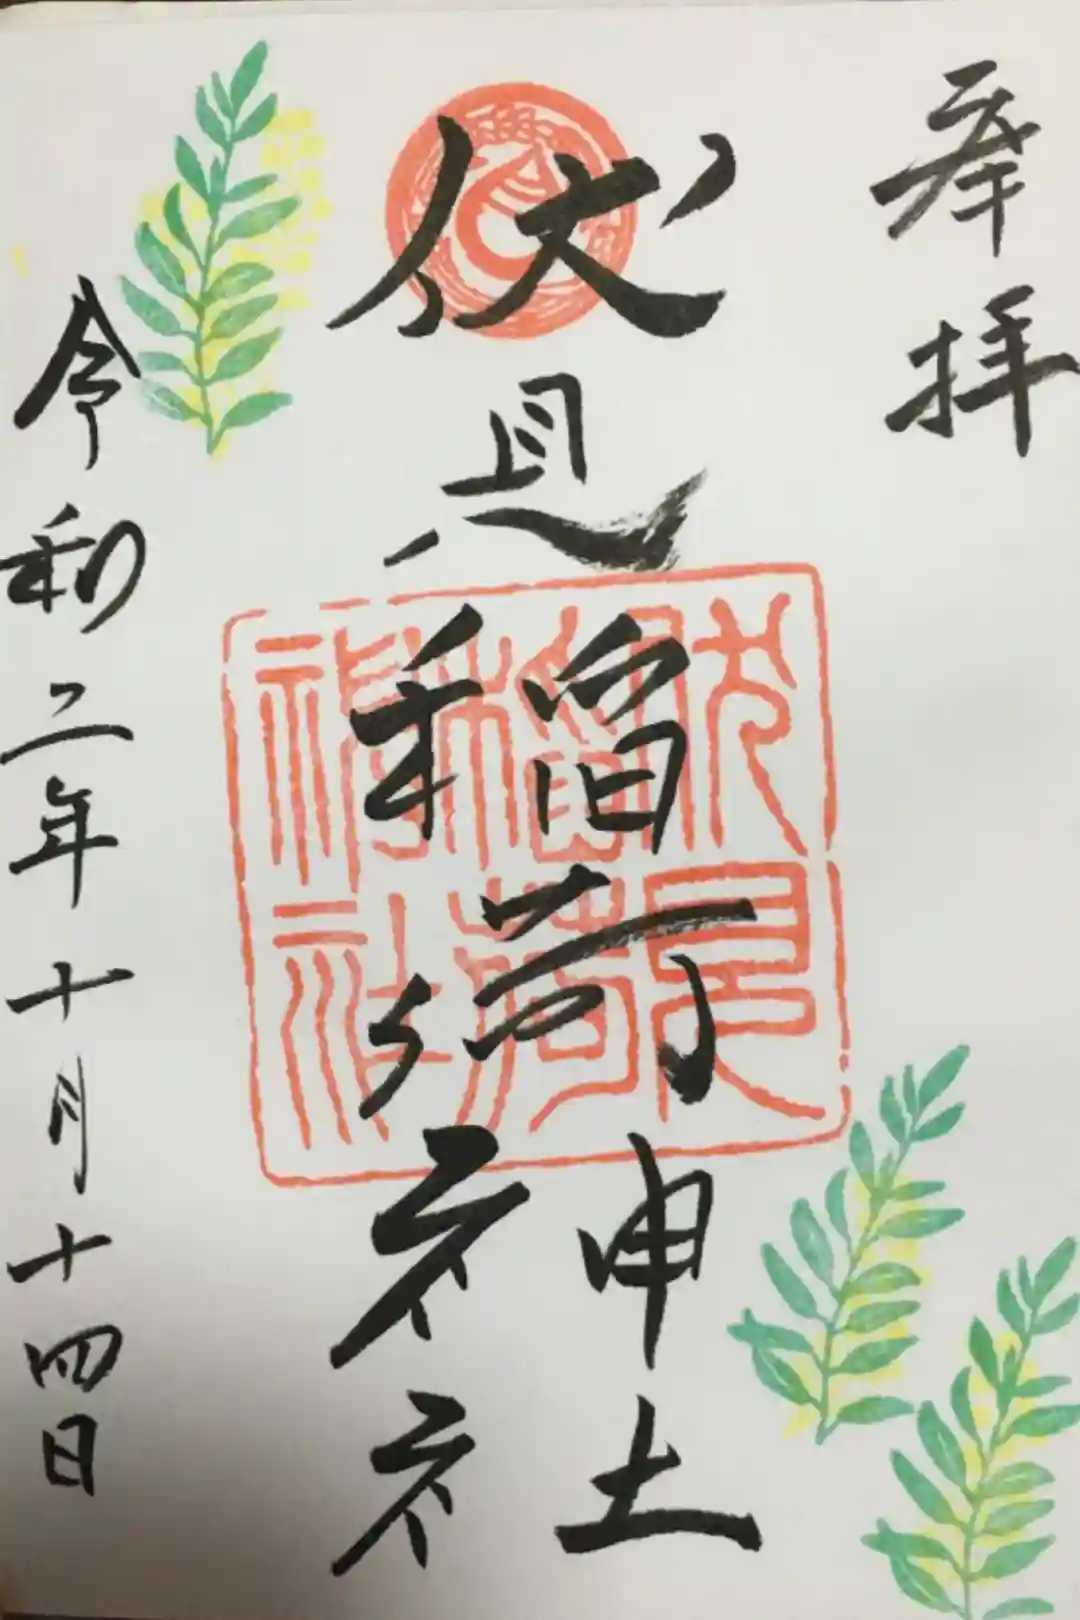 奉拝
伏見稲荷神社
伏見
稲荷
神社
令和二年十月十四日